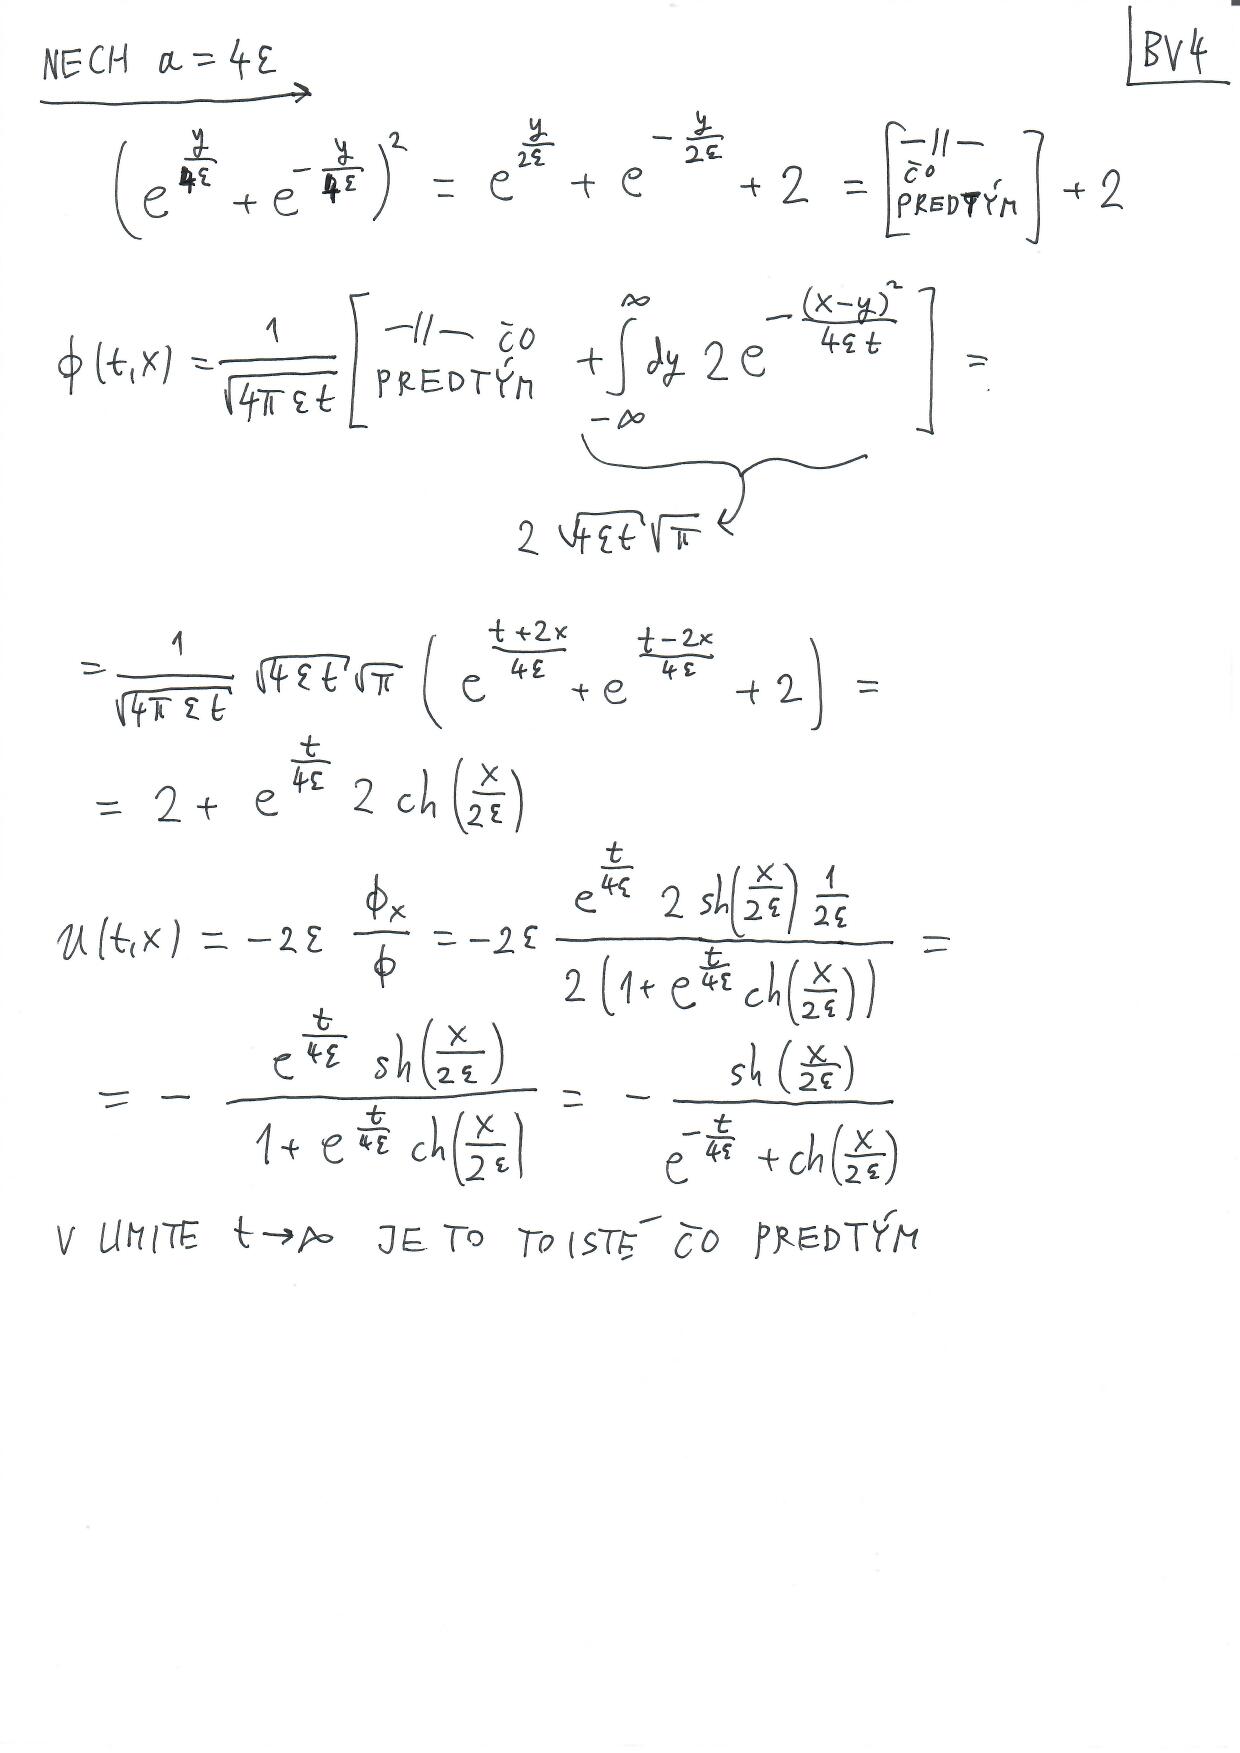 NECH a = 4ε
BV4
(e^{y/4ε} + e^{-y/4ε})² = e^{y/2ε} + e^{-y/2ε} + 2 = [—//— čo PREDTÝM] + 2
ϕ(t,x) = 1/√(4π ε t) [—//— čo PREDTÝM + ∫_{-∞}^{∞} dy 2 e^{-(x-y)²/4εt}] =
2 √(4εt) √π
= 1/√(4π ε t) √(4εt) √π (e^{(t+2x)/4ε} + e^{(t-2x)/4ε} + 2) =
= 2 + e^{t/4ε} 2 ch(x/2ε)
u(t,x) = -2ε ϕ_x/ϕ = -2ε (e^{t/4ε} 2 sh(x/2ε) 1/2ε)/(2(1 + e^{t/4ε} ch(x/2ε))) =
= - (e^{t/4ε} sh(x/2ε))/(1 + e^{t/4ε} ch(x/2ε)) = - sh(x/2ε)/(e^{-t/4ε} + ch(x/2ε))
V LIMITE t→∞ JE TO TO ISTÉ ČO PREDTÝM